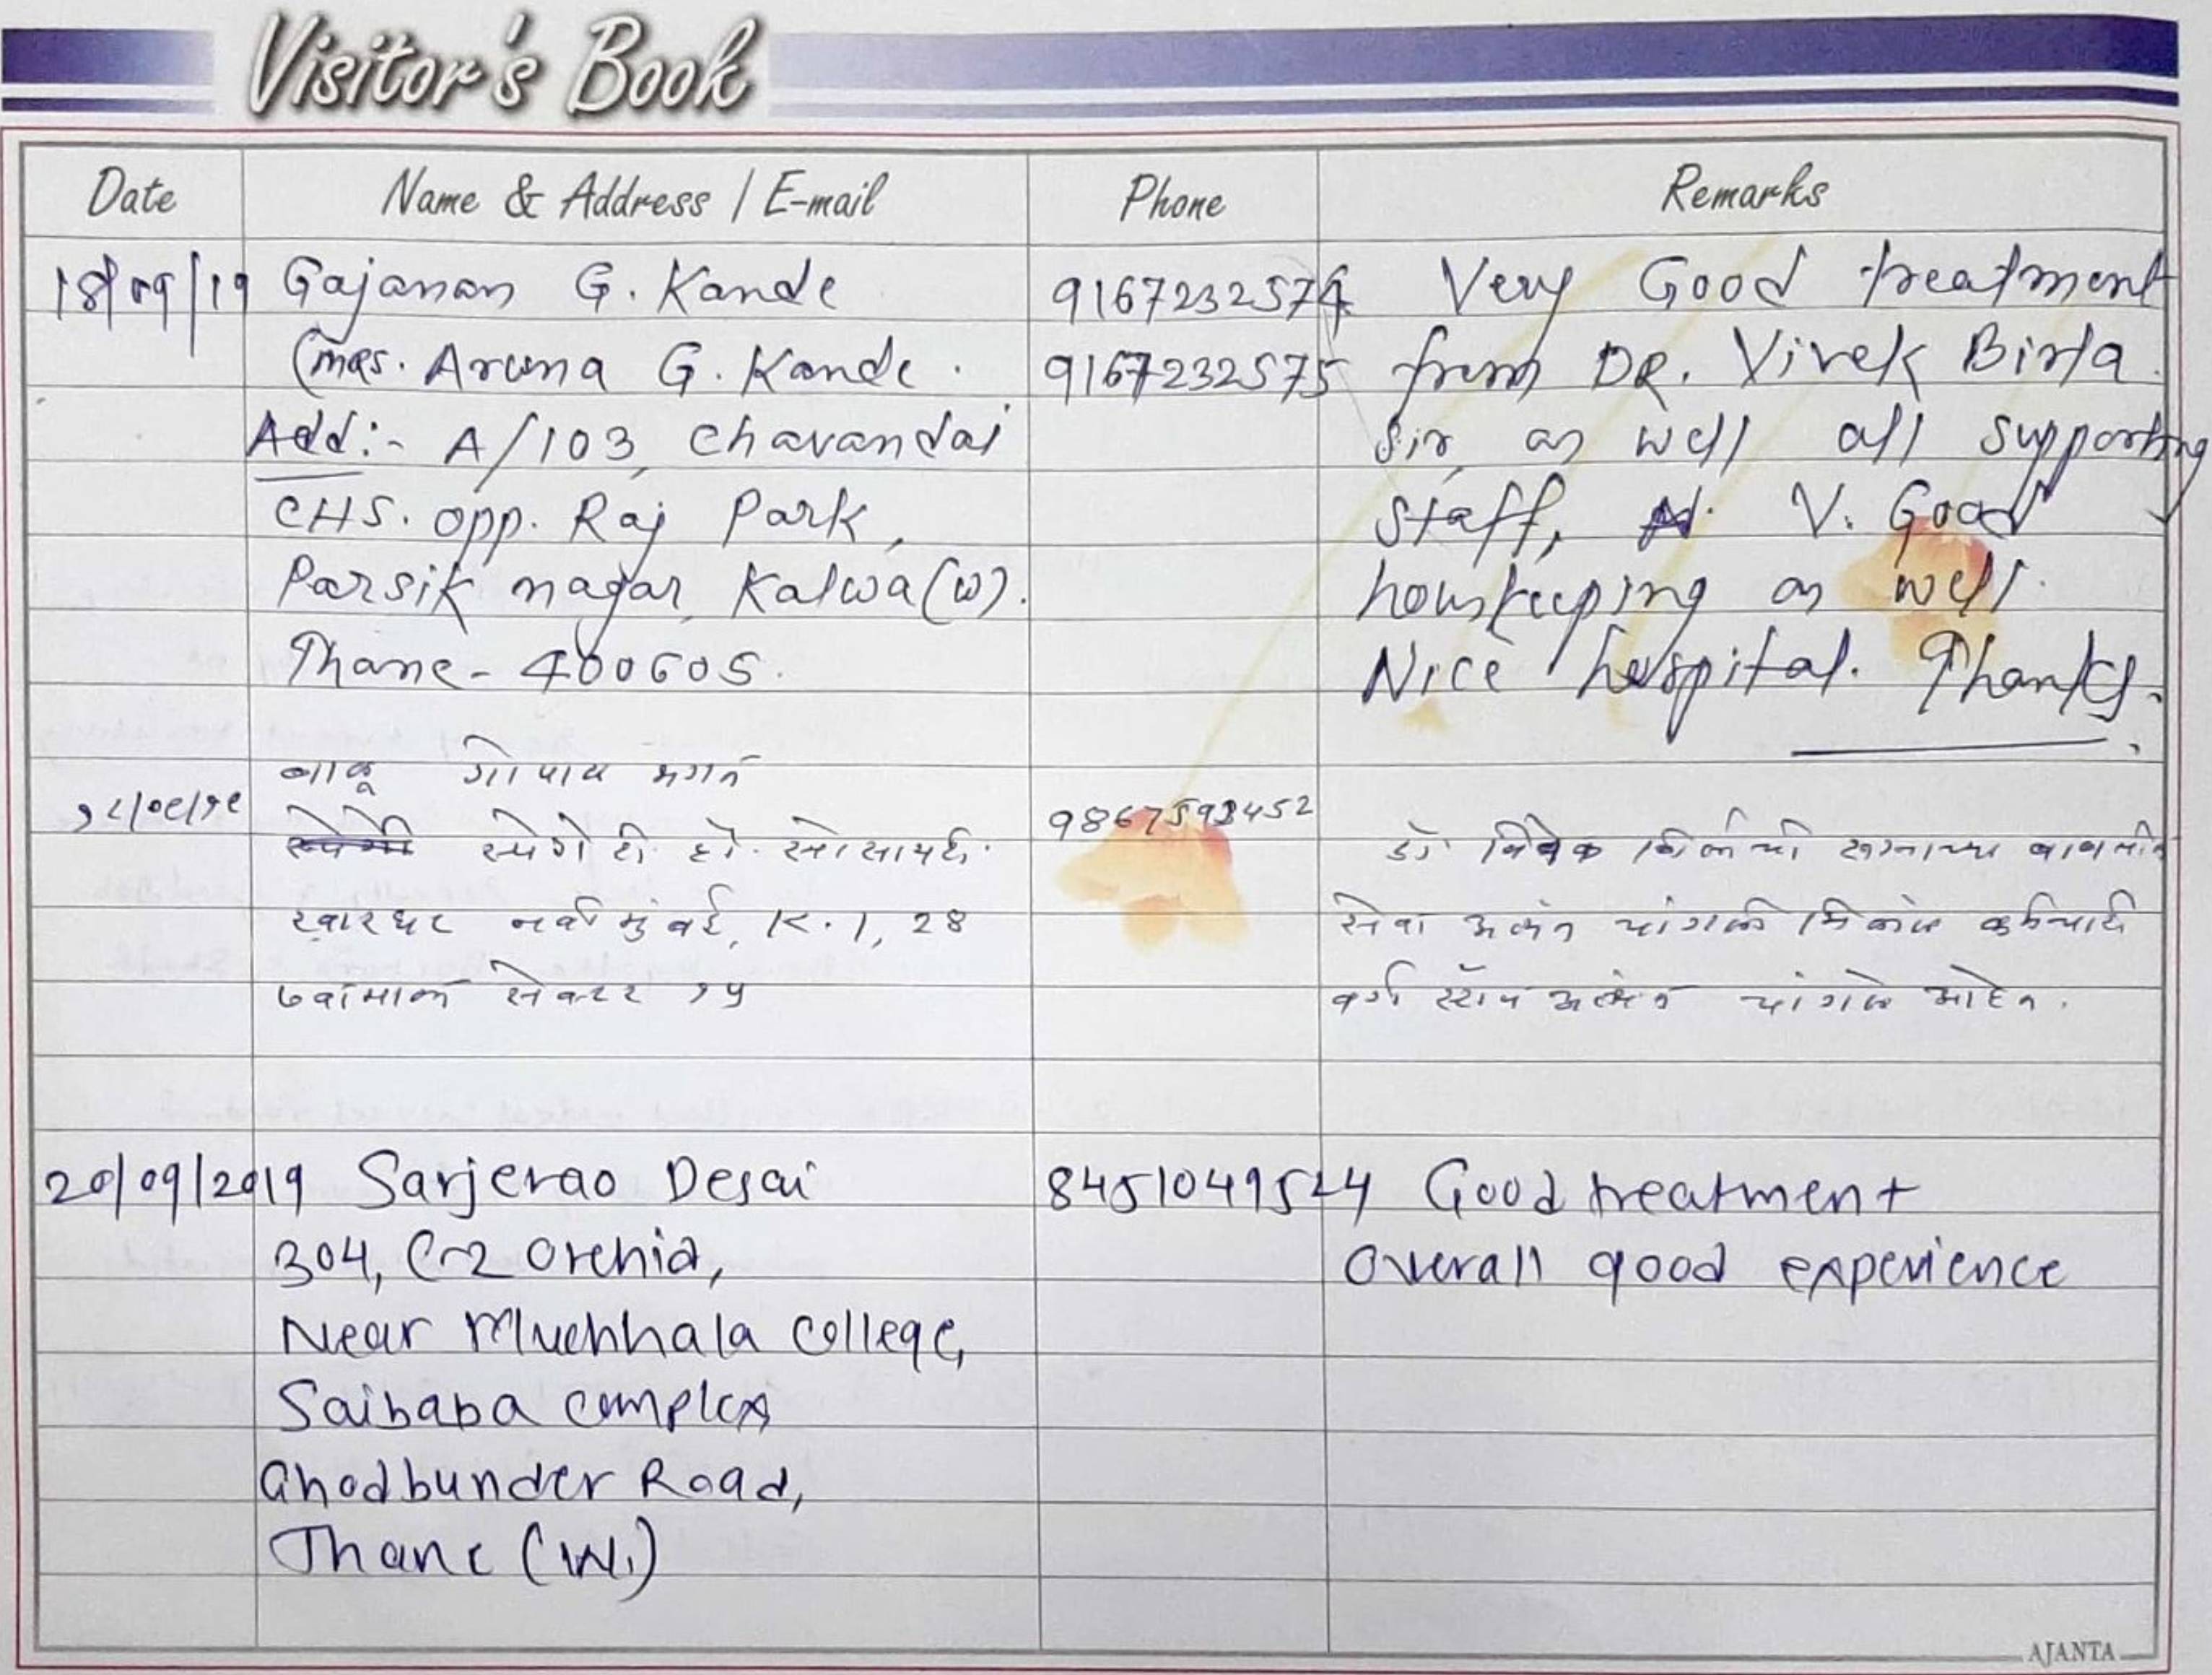 Visitor's Book
Date Name & Address / E-mail Phone Remarks
18/09/19 Gajanan G. Kande 9167232574 Very Good treatment
(Mrs. Aruna G. Kande. 9167232575 from DR. Vivek Birla.
Add:- A/103, Chavandai sir, as well all supporting
CHS. opp. Raj Park, staff, V. Good
Parsik nagar, Kalwa(W). houskeeping as well.
Thane - 400605. Nice hospital. Thanks.
गोपाळ भगत
१८/०९/१९ स्पेगेटी हौ. सोसायटी. डॉ विवेक
खारघर नवी मुंबई, K. 1, 28 सेवा अत्यंत चांगली मिळाली
७वा माळा सेक्टर १५ वर्ग स्टाफ अत्यंत चांगले आहेत.
20/09/2019 Sarjerao Desai 8451049524 Good treatment
304, C-2 Orchid, Overall good experience
Near Muchhala College,
Saibaba complex
Ghodbunder Road,
Thane (W.)
AJANTA